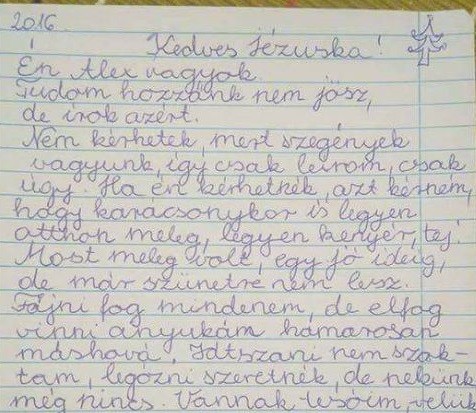 2016.
Kedves Jézuska!
Én Alex vagyok.
Tudom hozzánk nem jösz,
de irok azért.
Nem kérhetek, mert szegények
vagyunk, így csak leirom, csak
úgy. Ha én kérhetnék, azt kérném,
hogy karácsonykor is legyen
otthon meleg, legyen kenyér, tej.
Most meleg volt, egy jó ideig,
de már szünetre nem lesz.
Fájni fog mindenem, de elfog
vinni anyukám hamarosan
máshová. Játszani nem szok-
tam, legózni szeretnék, de nekünk
még nincs. Vannak tesóim, velük